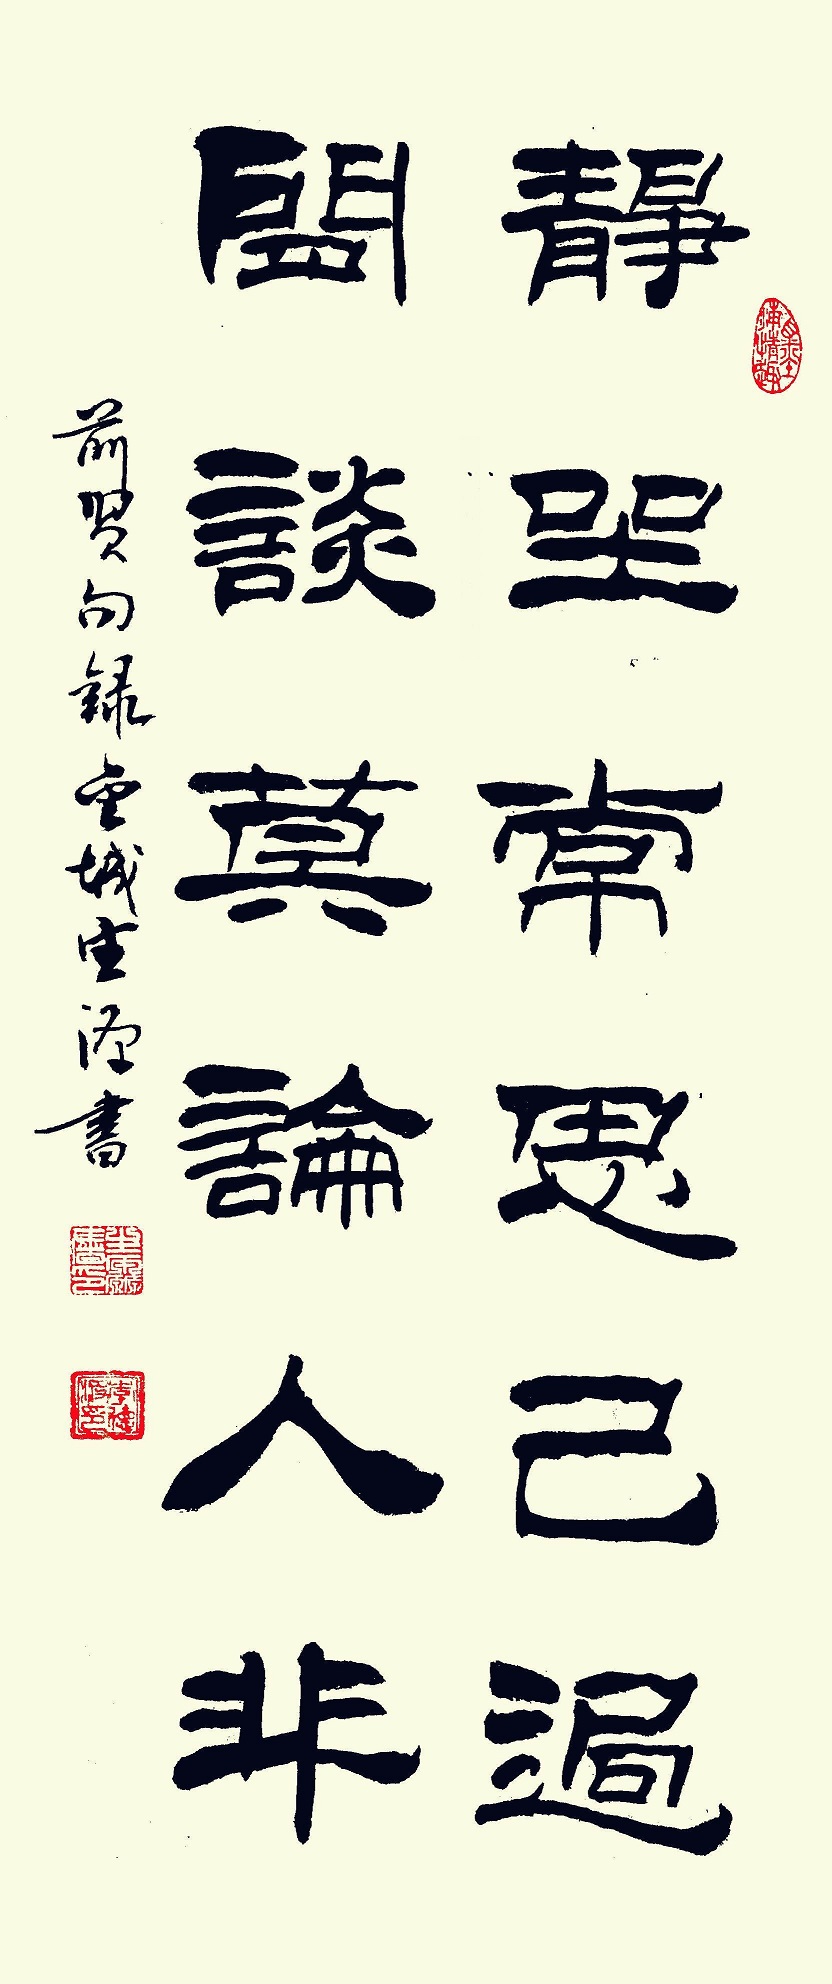 靜坐常思己過
閒談莫論人非
前賢句録城書